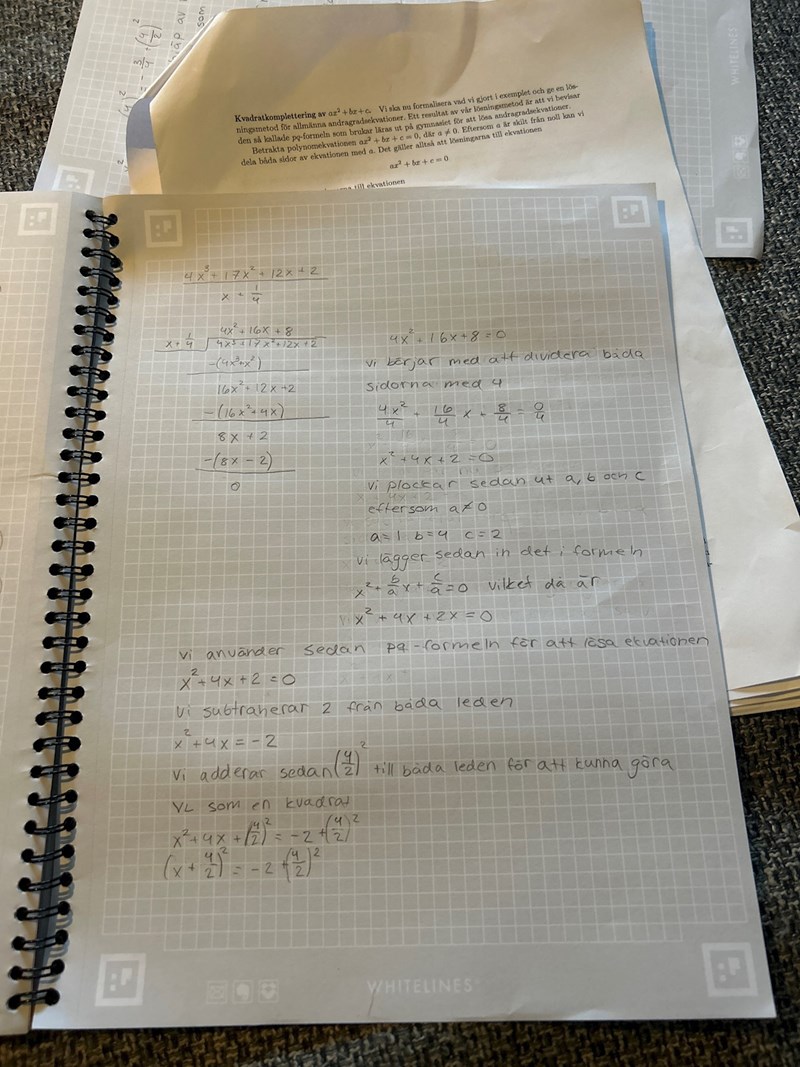 Kvadratkomplettering av ax² + bx + c. Vi ska nu formalisera vad vi gjort i exemplet och ge en lös-
ningsmetod för allmänna andragradsekvationer. Ett resultat av vår lösningsmetod är att vi bevisar
den så kallade pq-formeln som brukar läras ut på gymnasiet för att lösa andragradsekvationer.
Betrakta polynomekvationen ax² + bx + c = 0, där a ≠ 0. Eftersom a är skilt från noll kan vi
dela båda sidor av ekvationen med a. Det gäller alltså att lösningarna till ekvationen
ax² + bx + c = 0
till ekvationen
4x³ + 17x² + 12x + 2
x + 1/4
4x² + 16x + 8
x + 1/4 4x³ + 17x² + 12x + 2
-(4x³+x²)
16x² + 12x + 2
-(16x² + 4x)
8x + 2
-(8x - 2)
0
4x² + 16x + 8 = 0
Vi börjar med att dividera båda
sidorna med 4
4x²/4 + 16/4 x + 8/4 = 0/4
x² + 4x + 2 = 0
Vi plockar sedan ut a, b och c
eftersom a ≠ 0
a = 1 b = 4 c = 2
Vi lägger sedan in det i formeln
x² + b/a x + c/a = 0 vilket då är
x² + 4x + 2x = 0
Vi använder sedan pq-formeln för att lösa ekvationen
x² + 4x + 2 = 0
Vi subtraherar 2 från båda leden
x² + 4x = -2
Vi adderar sedan (4/2)² till båda leden för att kunna göra
VL som en kvadrat
x² + 4x + (4/2)² = -2 + (4/2)²
(x + 4/2)² = -2 + (4/2)²
WHITELINES